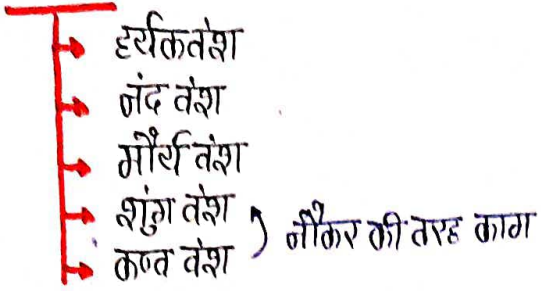 हर्यक वंश
नंद वंश
मौर्य वंश
शुंग वंश
कण्व वंश
नौकर की तरह काम